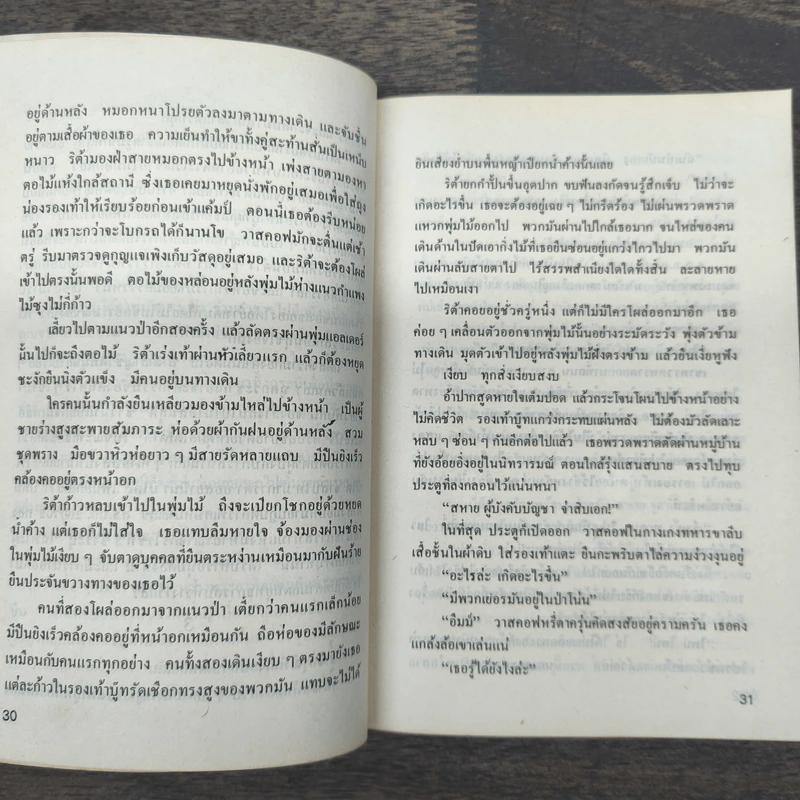 อยู่ด้านหลัง หมอกหนาโปรยตัวลงมาตามทางเดิน และจับชื้น
อยู่ตามเสื้อผ้าของเธอ ความเย็นทำให้ขาทั้งคู่สะท้านสั่นเป็นเหน็บ
หนาว ริต้ามองฝ่าสายหมอกตรงไปข้างหน้า เพ่งสายตามองหา
ตอไม้แห้งใกล้สถานี ซึ่งเธอเคยมาหยุดนั่งพักอยู่เสมอเพื่อใส่ถุง
น่องรองเท้าให้เรียบร้อยก่อนเข้าแค้มป์ ตอนนี้เธอต้องรีบหน่อย
แล้ว เพราะกว่าจะโบกรถได้ก็นานโข วาสคอฟมักจะตื่นแต่เช้า
ตรู่ รีบมาตรวจดูกุญแจเพิงเก็บวัสดุอยู่เสมอ และริต้าจะต้องโผล่
เข้าไปตรงนั้นพอดี ตอไม้ของหล่อนอยู่หลังพุ่มไม้ห่างแนวกำแพง
ไม้ซุงไม่กี่ก้าว
เลี้ยวไปตามแนวป่าอีกสองครั้ง แล้วลัดตรงผ่านพุ่มแอลเดอร์
นั้นไปก็จะถึงตอไม้ ริต้าเร่งเท้าผ่านหัวเลี้ยวแรก แล้วก็ต้องหยุด
ชะงักยืนนิ่งตัวแข็ง มีคนอยู่บนทางเดิน
ใครคนนั้นกำลังยืนเหลียวมองข้ามไหล่ไปข้างหน้า เป็นผู้
ชายร่างสูงสะพายสัมภาระ ห่อด้วยผ้ากันฝนอยู่ด้านหลัง สวม
ชุดพราง มือขวาหิ้วห่อยาว ๆ มีสายรัดหลายแถบ มีปืนยิงเร็ว
คล้องคออยู่ตรงหน้าอก
ริต้าก้าวหลบเข้าไปในพุ่มไม้ ถึงจะเปียกโชกอยู่ด้วยหยด
น้ำค้าง แต่เธอก็ไม่ใส่ใจ เธอแทบลืมหายใจ จ้องมองผ่านช่อง
ในพุ่มไม้เงียบ ๆ จับตาดูบุคคลที่ยืนตระหง่านเหมือนมากับฝันร้าย
ยืนประจันขวางทางของเธอไว้
คนที่สองโผล่ออกมาจากแนวป่า เตี้ยกว่าคนแรกเล็กน้อย
มีปืนยิงเร็วคล้องคออยู่ที่หน้าอกเหมือนกัน ถือห่อของมีลักษณะ
เหมือนกับคนแรกทุกอย่าง คนทั้งสองเดินเงียบ ๆ ตรงมายังเธอ
แต่ละก้าวในรองเท้าบู๊ทรัดเชือกทรงสูงของพวกมัน แทบจะไม่ได้
30
ยินเสียงย่ำบนพื้นหญ้าเปียกน้ำค้างนั้นเลย
ริต้ายกกำปั้นขึ้นอุดปาก ขบฟันลงกัดจนรู้สึกเจ็บ ไม่ว่าจะ
เกิดอะไรขึ้น เธอจะต้องอยู่เฉย ๆ ไม่กรีดร้อง ไม่เผ่นพรวดพราด
แหวกพุ่มไม้ออกไป พวกมันผ่านไปใกล้เธอมาก จนไหล่ของคน
เดินด้านในปัดเอากิ่งไม้ที่เธอยืนซ่อนอยู่แกว่งไกวไปมา พวกมัน
เดินผ่านลับสายตาไป ไร้สรรพสำเนียงใดใดทั้งสิ้น ละลายหาย
ไปเหมือนเงา
ริต้าคอยอยู่ชั่วครู่หนึ่ง แต่ก็ไม่มีใครโผล่ออกมาอีก เธอ
ค่อย ๆ เคลื่อนตัวออกจากพุ่มไม้นั้นอย่างระมัดระวัง พุ่งตัวข้าม
ทางเดิน มุดตัวเข้าไปอยู่หลังพุ่มไม้ฝั่งตรงข้าม แล้วยืนเงี่ยหูฟัง
เงียบ ทุกสิ่งเงียบสงบ
อ้าปากสูดหายใจเต็มปอด แล้วกระโจนโผนไปข้างหน้าอย่าง
ไม่คิดชีวิต รองเท้าบู๊ทแกว่งกระทบแผ่นหลัง ไม่ต้องมัวลัดเลาะ
หลบ ๆ ซ่อน ๆ กันอีกต่อไปแล้ว เธอพรวดพราดตัดผ่านหมู่บ้าน
ที่ยังอ้อยอิ่งอยู่ในนิทรารมณ์ ตอนใกล้รุ่งแสนสบาย ตรงไปทุบ
ประตูที่ลงกลอนไว้แน่นหนา
“สหาย ผู้บังคับบัญชา จ่าสิบเอก!”
ในที่สุด ประตูก็เปิดออก วาสคอฟในกางเกงทหารขาลีบ
เสื้อชั้นในผ้าดิบ ใส่รองเท้าแตะ ยืนกะพริบตาไล่ความง่วงงุนอยู่
“อะไรล่ะ เกิดอะไรขึ้น”
“มีพวกเยอรมันอยู่ในป่าโน่น”
“อืมม์” วาสคอฟหรี่ตาครุ่นคิดสงสัยอยู่ครามครัน เธอคง
แกล้งล้อเขาเล่นแน่
“เธอรู้ได้ยังไงล่ะ”
31